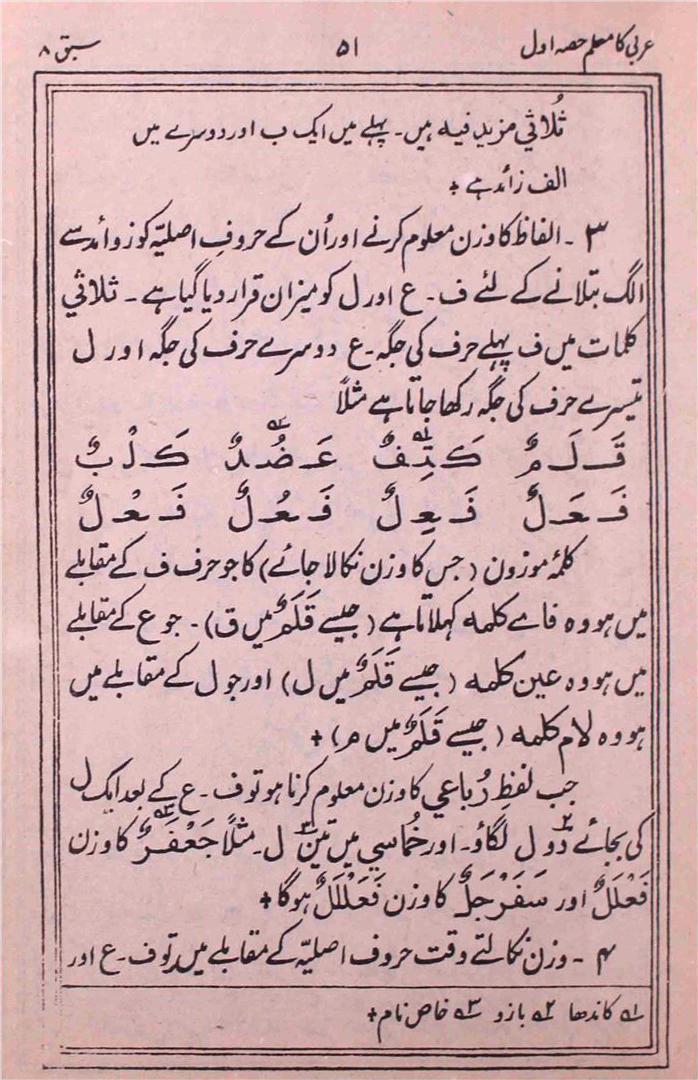 عربی کا معلم حصہ اول ۵۱ سبق ۸
ثُلاثي مزید فیہ ہیں۔ پہلے میں ایک ب اور دوسرے میں
الف زائد ہے +
۳ ۔ الفاظ کا وزن معلوم کرنے اور اُن کے حروفِ اصلیّہ کو زوائد سے
الگ بتلانے کے لئے ف۔ ع اور ل کو میزان قرار دیا گیا ہے ۔ ثلاثي
کلمات میں ف پہلے حرف کی جگہ۔ ع دوسرے حرف کی جگہ اور ل
تیسرے حرف کی جگہ رکھا جاتا ہے مثلاً
قَـلَـمٌ كَـتِـفٌ۱؎ عَـضُـدٌ۲؎ كَـلْـبٌ
فَـعَـلٌ فَـعِـلٌ فَـعُـلٌ فَـعْـلٌ
کلمۂ موزون (جس کا وزن نکالا جائے) کا جو حرف ف کے مقابلے
میں ہو وہ فاے کلمہ کہلاتا ہے (جیسے قَلَمٌ میں ق)۔ جو ع کے مقابلے
میں ہو وہ عین کلمہ (جیسے قَلَمٌ میں ل) اور جو ل کے مقابلے میں
ہو وہ لام کلمہ (جیسے قَلَمٌ میں م) +
جب لفظِ رُباعي کا وزن معلوم کرنا ہو تو ف۔ ع کے بعد ایک ل
کی بجائے دو۲ ل لگاؤ۔ اور خُماسي میں تین۳ ل۔ مثلاً جَعْفَرٌ۳؎ کا وزن
فَعْلَلٌ اور سَفَرْجَلٌ کا وزن فَعَلْلَلٌ ہوگا +
۴ ۔ وزن نکالتے وقت حروف اصلیّہ کے مقابلے میں تو ف۔ ع اور
۱؎ کاندھا ۲؎ بازو ۳؎ خاص نام +